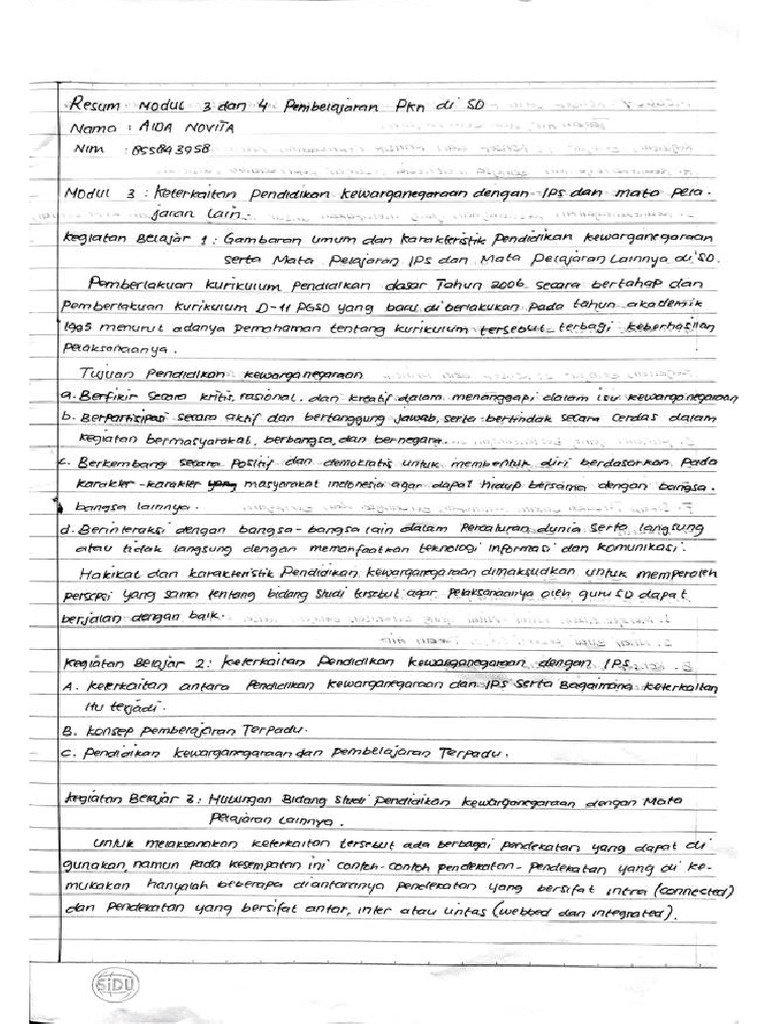 Resum Modul 3 dan 4 Pembelajaran PKn di SD
Nama : AIDA NOVITA
Nim : 855843958
Modul 3 : Keterkaitan Pendidikan Kewarganegaraan dengan IPS dan mata pela-
jaran Lain.
Kegiatan Belajar 1 : Gambaran umum dan Karakteristik Pendidikan Kewarganegaraan
serta Mata Pelajaran IPS dan Mata Pelajaran Lainnya di SD.
Pemberlakuan kurikulum pendidikan dasar Tahun 2006 secara bertahap dan
Pemberlakuan Kurikulum D-II PGSD yang baru di berlakukan pada tahun akademik
1995 menurut adanya pemahaman tentang kurikulum tersebut terbagi keberhasilan
pelaksanaanya.
Tujuan Pendidikan Kewarganegaraan
a. Berfikir secara kritis, rasional, dan kreatif dalam menanggapi dalam isu kewarganegaraan
b. Berpartisipasi secara aktif dan bertanggung jawab, serta bertindak secara cerdas dalam
kegiatan bermasyarakat, berbangsa, dan bernegara.
c. Berkembang secara positif dan demokratis untuk membentuk diri berdasarkan pada
karakter-karakter yang masyarakat indonesia agar dapat hidup bersama dengan bangsa-
bangsa lainnya.
d. Berinteraksi dengan bangsa-bangsa lain dalam Percaturan dunia serta langsung
atau tidak langsung dengan memanfaatkan teknologi informasi dan komunikasi.
Hakikat dan karakteristik Pendidikan kewarganegaraan dimaksudkan untuk memperoleh
persepsi yang sama tentang bidang studi tersebut agar pelaksanaanya oleh guru SD dapat
berjalan dengan baik.
Kegiatan Belajar 2 : Keterkaitan Pendidikan Kewarganegaraan dengan IPS
A. Keterkaitan antara Pendidikan Kewarganegaraan dan IPS serta Bagaimana keterkaitan
itu terjadi.
B. Konsep pembelajaran Terpadu.
C. Pendidikan kewarganegaraan dan pembelajaran Terpadu.
Kegiatan Belajar 3 : Hubungan Bidang studi Pendidikan Kewarganegaraan dengan Mata
Pelajaran Lainnya.
Untuk melaksanakan keterkaitan tersebut ada berbagai pendekatan yang dapat di
gunakan, namun pada kesempatan ini contoh-contoh pendekatan-pendekatan yang di ke-
mukakan hanyalah beberapa diantaranya pendekatan yang bersifat intra (connected)
dan pendekatan yang bersifat antar, inter atau lintas (webbed dan integrated).
SiDU